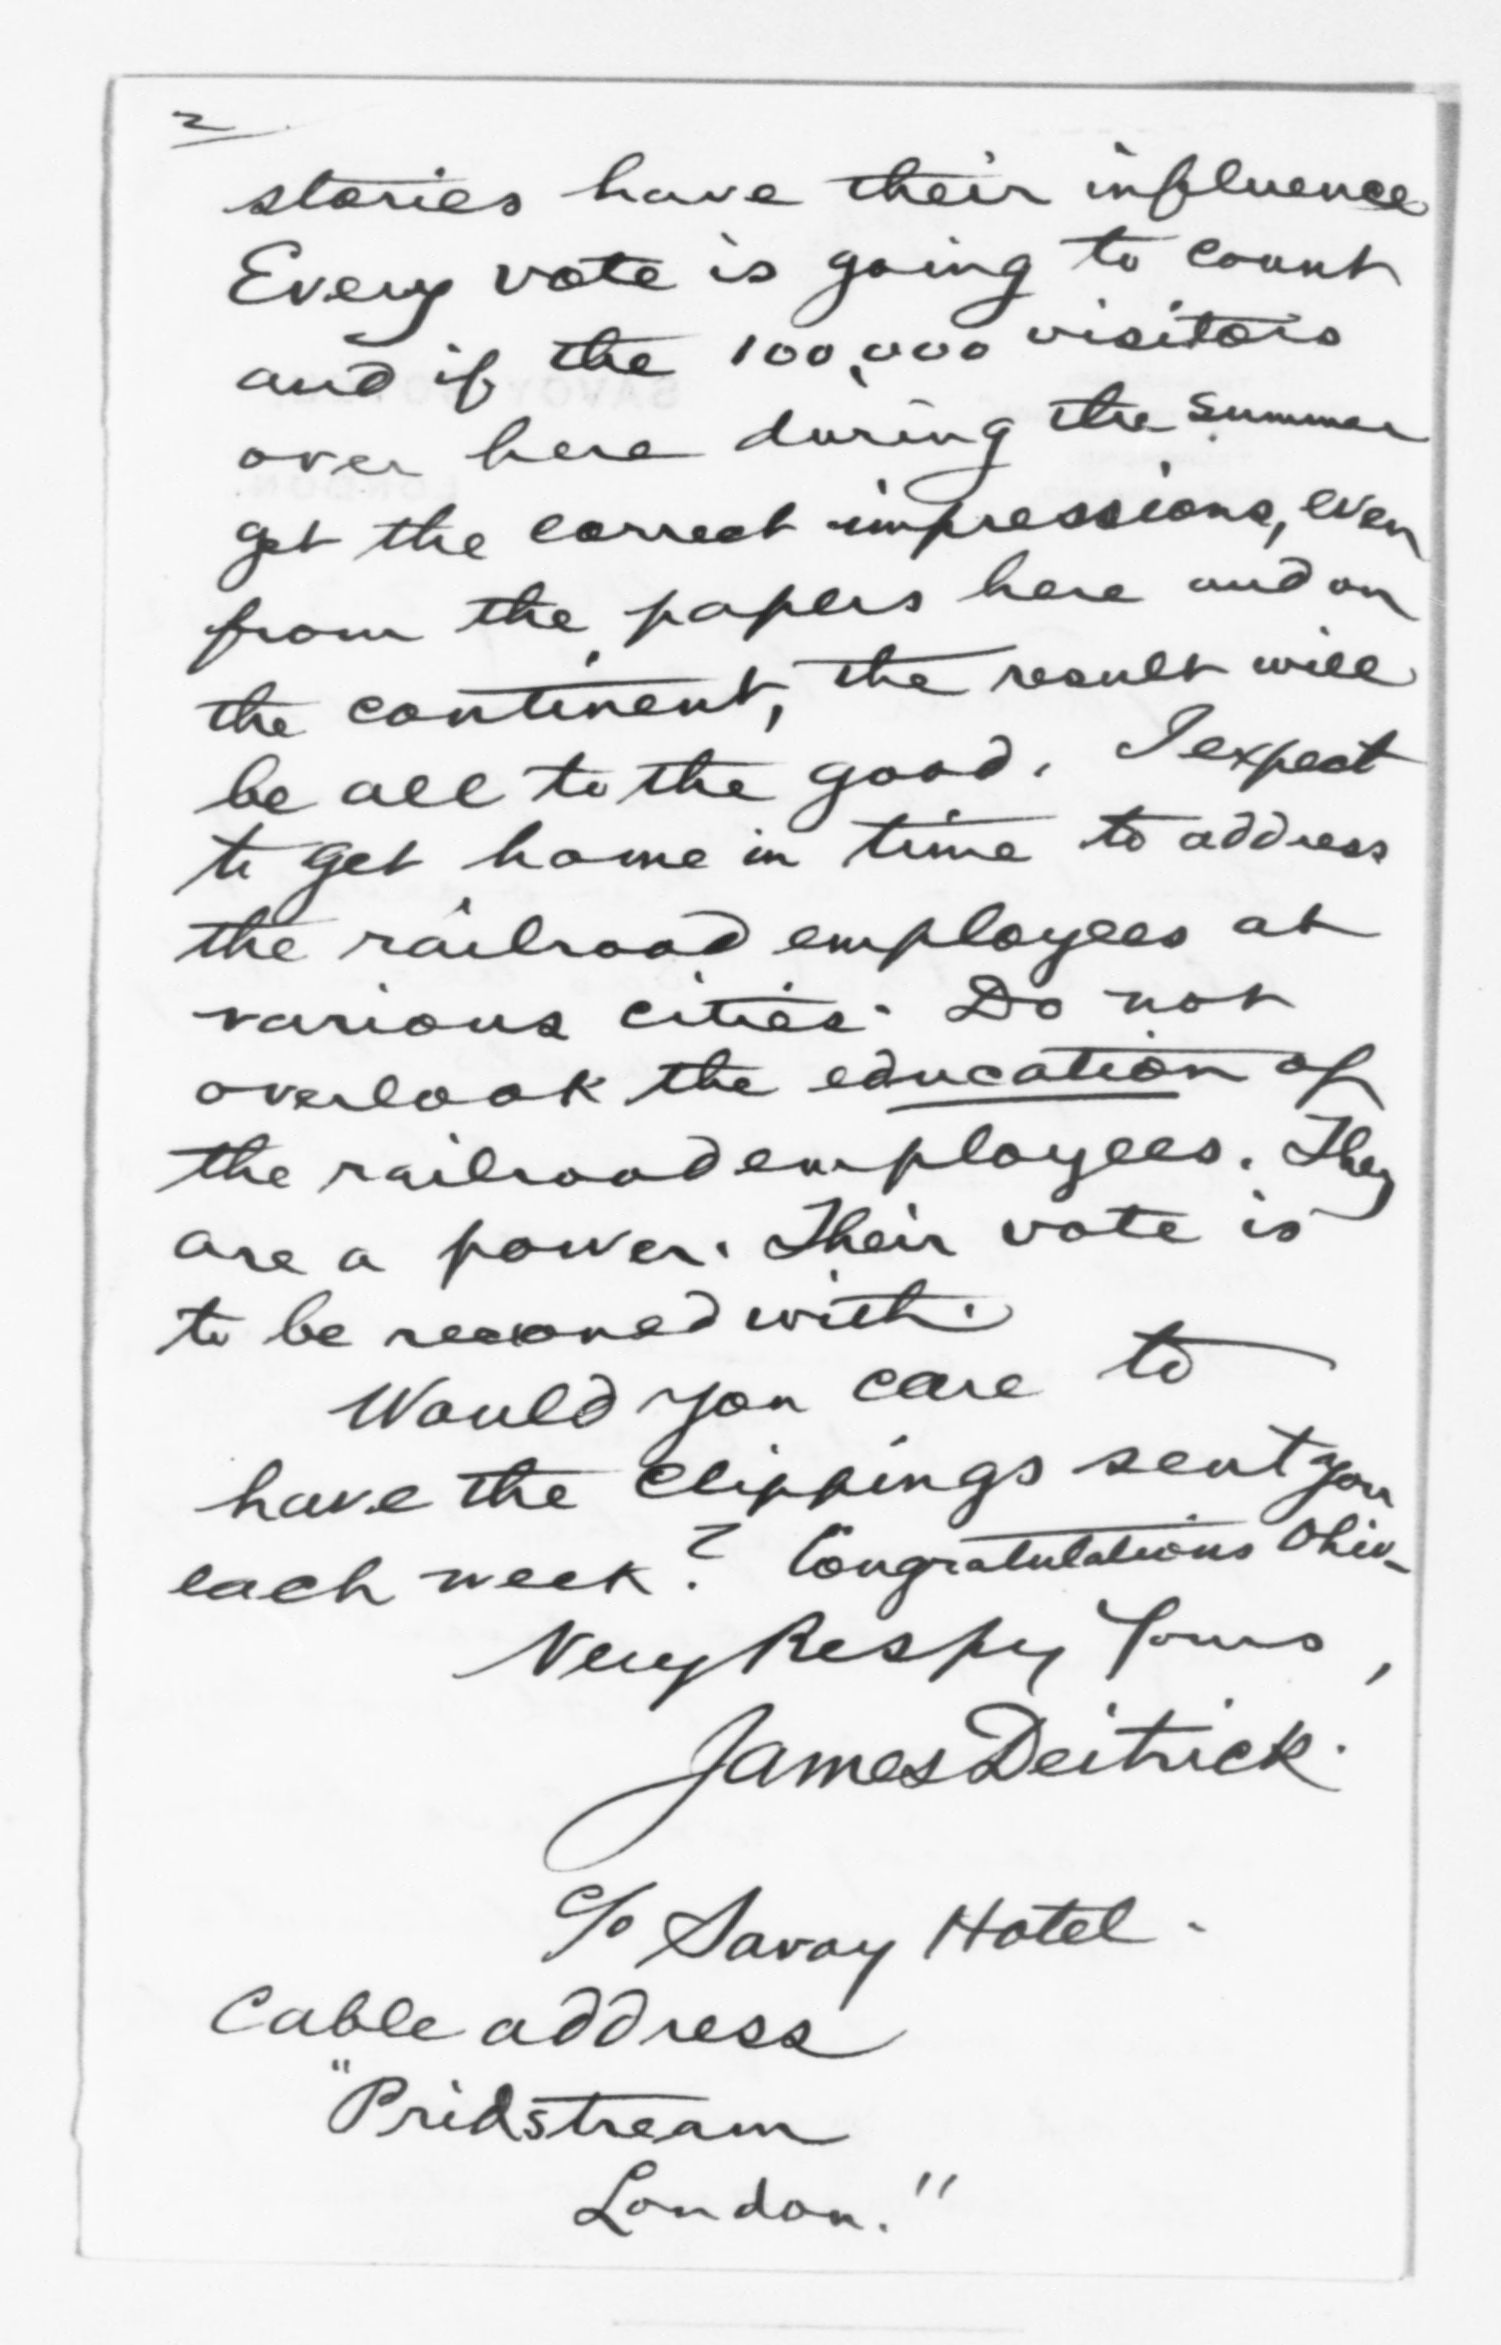 2
stories have their influence
Every vote is going to count
and if the 100,000 visitors
over here during the summer
get the correct impressions, even
from the papers here and on
the continent, the result will
be all to the good. I expect
to get home in time to address
the railroad employees at
various cities. Do not
overlook the education of
the railroad employees. They
are a power. Their vote is
to be reckoned with.
Would you care to
have the clippings sent you
each week? Congratulations Ohio-
Very Respy Yours,
James Deitrick.
c/o Savoy Hotel.
Cable address
"Pridstream
London."